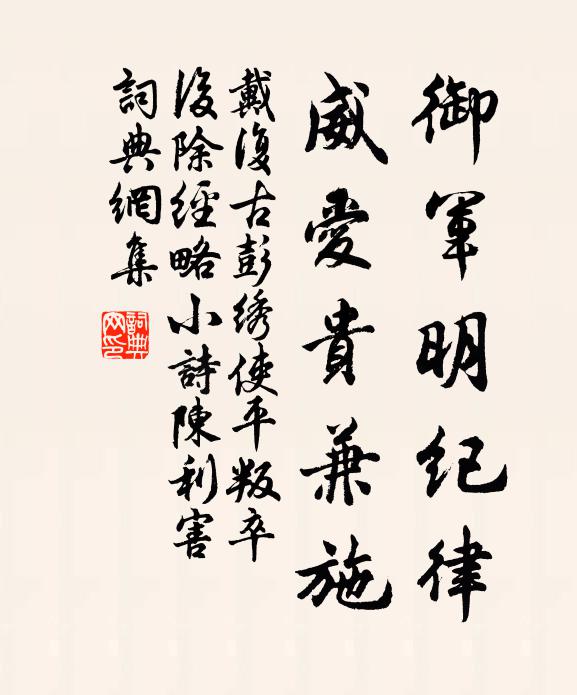 御軍明紀律
威愛貴兼施
戴復古彭綉使平叛卒
後除經略小詩陳利害
詞典網集
詞典網印